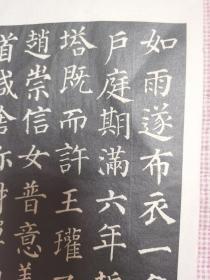 如雨遂布衣一
戶庭期滿六年誓
塔既而許王瓘
趙崇信女普意善
首咸捨